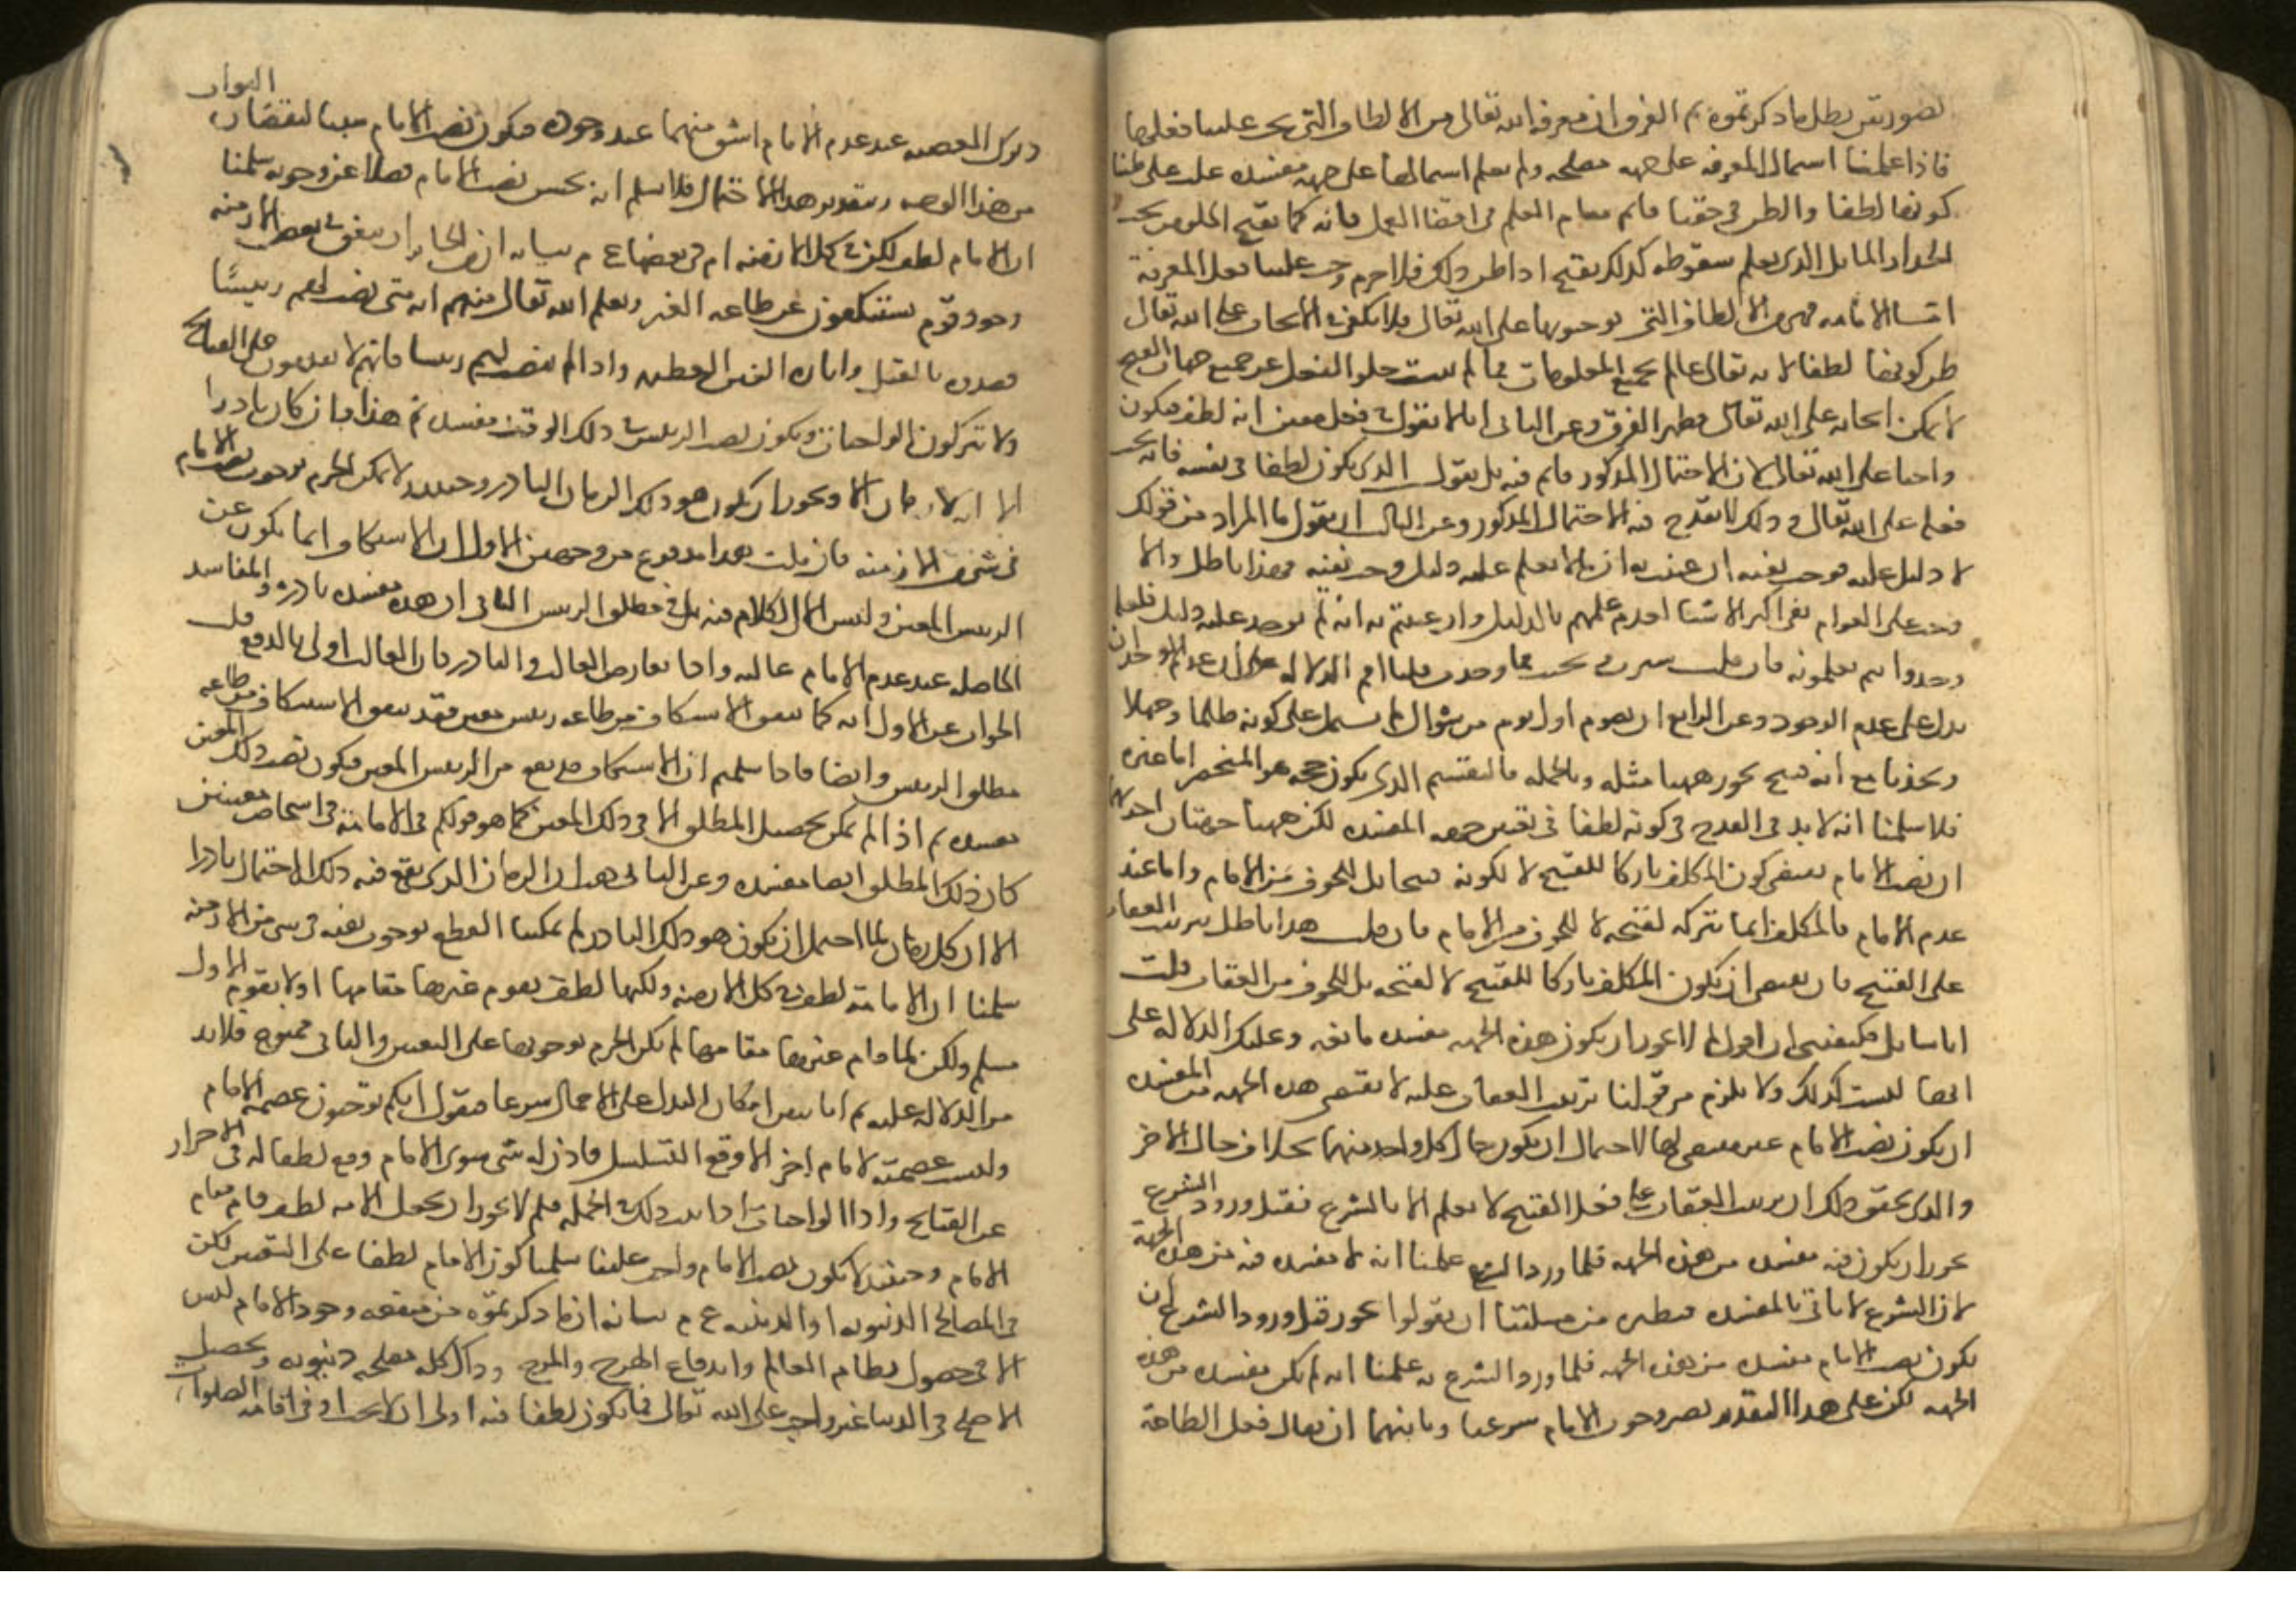 تصورتين بطل ما ذكرتموه ثم الفرق ان معرفة الله تعالى من الالطاف التي يجب علينا فعلها
فاذا علمنا اشتمال المعرفة على جهة مصلحة ولم نعلم اشتمالها على جهة مفسدة غلب على ظننا
كونها لطفا والظن في حقنا قائم مقام العلم في اقتضا العمل فانه كما يقبح الجلوس تحت
الجدار المايل الذي يعلم سقوطه كذلك يقبح اذا ظن ذلك فلا جرم وجب علينا فعل المعرفة
اما الامامة فهي من الالطاف التي توجبونها على الله تعالى فلا يكفي في الايجاب على الله تعالى
ظن كونها لطفا لانه تعالى عالم بجميع المعلومات فما لم يثبت خلو الفعل عن جميع جهات القبح
لا يمكن ايجابه على الله تعالى فظهر الفرق وعن الثاني انا لا نقول في فعل معين انه لطف فيكون
واجبا على الله تعالى لان الاحتمال المذكور قائم فيه بل نقول الذي يكون لطفا في نفسه فانه يجب
فعله على الله تعالى وذلك لا يقدح فيه الاحتمال المذكور وعن الثالث ان نقول ما المراد من قولك
لا دليل عليه فوجب نفيه ان عنيت به ان ما لا يعلم عليه دليل وجب نفيه فهذا باطل والا
وجب على العوام نفي اكثر الاشيا لعدم علمهم بالدليل وان عنيتم به انه لم يوجد عليه دليل فلعله
وجد وانتم تعلمونه فان قلت سبرت بحثت فما وجدت قلنا اقم الدلالة على ان عدم الوجدان
يدل على عدم الوجود وعن الرابع ان صوم اول يوم من شوال لم يشتمل على كونه ظلما وجهلا
وكذبا مع انه قبيح فجوز ههنا مثله وبالجملة فالتقسيم الذي يكون حجة هو المنحصر اما غيره
فلا سلمنا انه لا بد في القدح في كونه لطفا في تعيين جهة المفسدة لكن ههنا جهتان احداهما
ان نصب الامام يقتضي كون المكلف تاركا للقبيح لا لكونه قبيحا بل للخوف من الامام واما عند
عدم الامام فالمكلف انما يتركه لقبحه لا للخوف من الامام فان قلت هذا باطل بترتب العقاب
على القبيح فانه يقتضي ان يكون المكلف تاركا للقبيح لا لقبحه بل للخوف من العقاب قلت
انا سايل فيكفيني ان اقول لم لا يجوز ان يكون هذه الجهة مفسدة مانعة وعليك الدلالة على
انها ليست كذلك ولا يلزم من قولنا ترتب العقاب عليه لا يقتضي هذه الجهة من المفسدة
ان يكون نصب الامام غير مقتضي لها لاحتمال ان يكون حال كل واحد منهما بخلاف حال الاخر
والذي يحقق ذلك ان ترتب العقاب على فعل القبيح لا يعلم الا بالشرع فقبل ورود الشرع
يجوز ان يكون فيه مفسدة من هذه الجهة فلما ورد الشرع علمنا انه لا مفسدة فيه من هذه الجهة
لان الشرع لا ياتي بالمفسدة فنظير من مسئلتنا ان يقولوا يجوز قبل ورود الشرع ان
يكون نصب الامام مفسدة من هذه الجهة فلما ورد الشرع به علمنا انه لم يكن مفسدة من هذه
الجهة لكن على هذا التقدير يصير وجوب الامام شرعيا وثانيهما ان يقال فعل الطاعة
البواب
وترك المعصية عند عدم الامام اشق منهما عند وجوده فيكون نصب الامام سببا لنقصان
من هذا الوجه وبتقدير هذا الاحتمال فلا نسلم انه يحسن نصب الامام فضلا عن وجوبه سلمنا
ان الامام لطف لكن في كل الازمنة ام في بعضها ع م بيانه ان من الجايز ان يتفق في بعض الازمنة
وجود قوم يستنكفون عن طاعة الغير ويعلم الله تعالى منهم انه متى نصب لهم رييسا
قصدوه بالقتل واثارة الفتن العظيمة واذا لم ينصب لهم رييسا فانهم لا يقدمون على القبايح
ولا يتركون الواجبات فيكون نصب الرييس في ذلك الوقت مفسدة ثم هذا وان كان نادرا
الا ان كل زمان الا ويجوز ان يكون هو ذلك الزمان النادر وحينئذ لا يمكن الجزم بوجوب نصب الامام
في شي من الازمنة فان قلت هذا مدفوع من وجهين الاول ان الاستنكاف انما يكون عن
الرييس المعين وليس الكلام فيه بل في مطلق الرييس الثاني ان هذه مفسدة نادرة والمفاسد
الحاصلة عند عدم الامام غالبة واذا تعارض الغالب والنادر فان الغالب اولى بالدفع قلت
الجواب عن الاول انه كما يتفق الاستنكاف من طاعة رييس معين فقد يتفق الاستنكاف من طاعة
مطلق الرييس وايضا فاذا سلمتم ان الاستنكاف قد يقع من الرييس المعين فيكون نصب ذلك المعين
مفسدة ثم اذا لم يمكن تحصيل المطلق الا في ذلك المعين كما هو قولكم في الامامة في اشخاص معينين
كان ذلك المطلق ايضا مفسدة وعن الثاني هب ان الزمان الذي يقع فيه ذلك الاحتمال نادرا
الا ان كل زمان لما احتمل ان يكون هو ذلك النادر لم يمكننا القطع بوجوب نصبه في شي من الازمنة
سلمنا ان الامامة لطف في كل الازمنة ولكنها لطف يقوم غيرها مقامها او لا يقوم الاول
مسلم ولكن لما قام غيرها مقامها لم يكن الجزم بوجوبها على التعيين والثاني ممنوع فلا بد
من الدلالة عليه ثم انا نبين امكان البدل على الاجمال شرعا فنقول انكم توجبون عصمة الامام
وليست عصمته لامام اخر الا وقع التسلسل فاذن له شي سوى الامام وقع لطفا له في الاحتراز
عن القبايح وادا الواجبات اذا ثبت ذلك في الجملة فلم لا يجوز ان يحصل للامة لطف قام مقام
الامام وحينئذ لا يكون نصب الامام واجب علينا سلمنا كون الامام لطفا على التعيين لكن
في المصالح الدنيوية او الدينية ع م بيانه ان ما ذكرتموه من منفعة وجود الامام ليس
الا في حصول نظام العالم واندفاع الهرج والمرج وذاك كله مصلحة دنيوية وتحصيل
الاصلح في الدنيا غير واجب على الله تعالى فما يكون لطفا فيه اولى ان لا يجب او في اقامة الصلوات